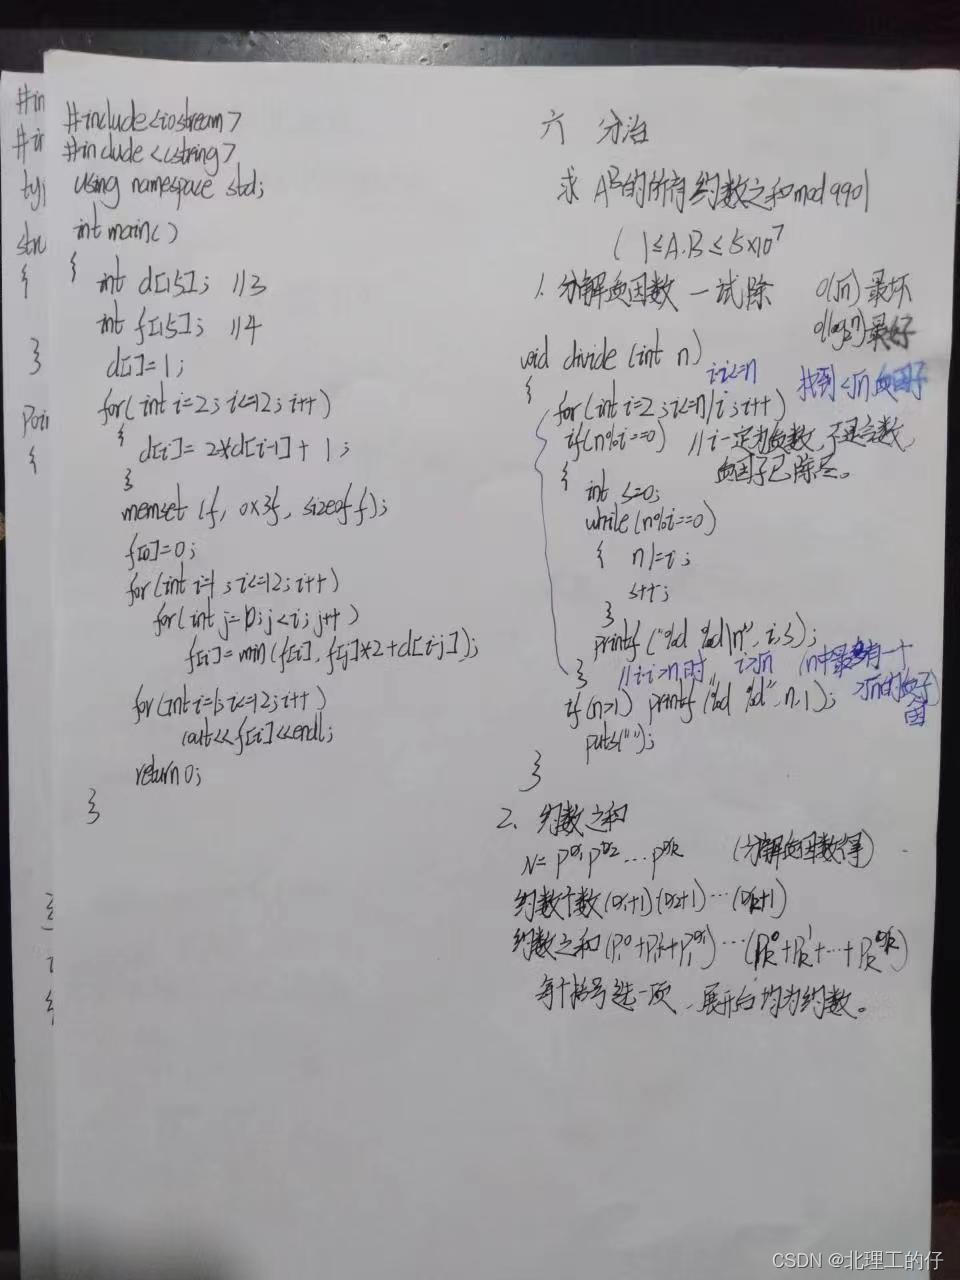 #in
#in
typ
stru
{
}
Poin
{
#include<iostream>
#include<cstring>
using namespace std;
int main()
{
int d[15]; //3
int f[15]; //4
d[1]=1;
for(int i=2;i<=12;i++)
{
d[i]=2*d[i-1]+1;
}
memset(f, 0x3f, sizeof f);
f[0]=0;
for(int i=1;i<=12;i++)
for(int j=0;j<i;j++)
f[i]=min(f[i],f[j]*2+d[i-j]);
for(int i=1;i<=12;i++)
cout<<f[i]<<endl;
return 0;
}
六 分治
求 A^B的所有约数之和mod 9901
(1≤A.B≤5×10^7
1. 分解质因数 —试除 O(√n) 最坏
O(log2n)最好
void divide (int n)
i·i<=n 找到<√n质因子
{
for(int i=2;i<=n/i;i++)
if(n%i==0) //i一定为质数,不是合数,
质因子已除尽。
{ int s=0;
while(n%i==0)
{ n/=i;
s++;
}
printf("%d %d\n",i,s);
} //i·i>n时 i>√n (n中最多有一个
>√n的质因子)
if(n>1) printf("%d %d",n,1);
puts("");
}
2、约数之和
N=P^α1 P^α2…P^αk (分解质因数得)
约数个数(α1+1)(α2+1)…(αk+1)
约数之和(P1^0+P1^1+P1^α1)…(Pk^0+Pk^1+…+Pk^αk)
每个括号选一项、展开后均为约数。
CSDN @北理工的仔